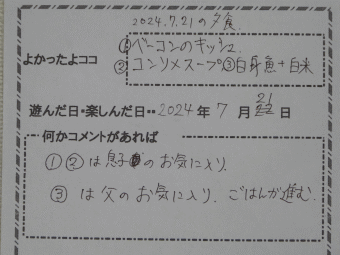 2024.7.21の夕食.
よかったよココ
①ベーコンのキッシュ.
②コンソメスープ③白身魚+白米
遊んだ日・楽しんだ日・・2024年7月21日
何かコメントがあれば
①②は息子のお気に入り.
③は父のお気に入り.ごはんが進む.